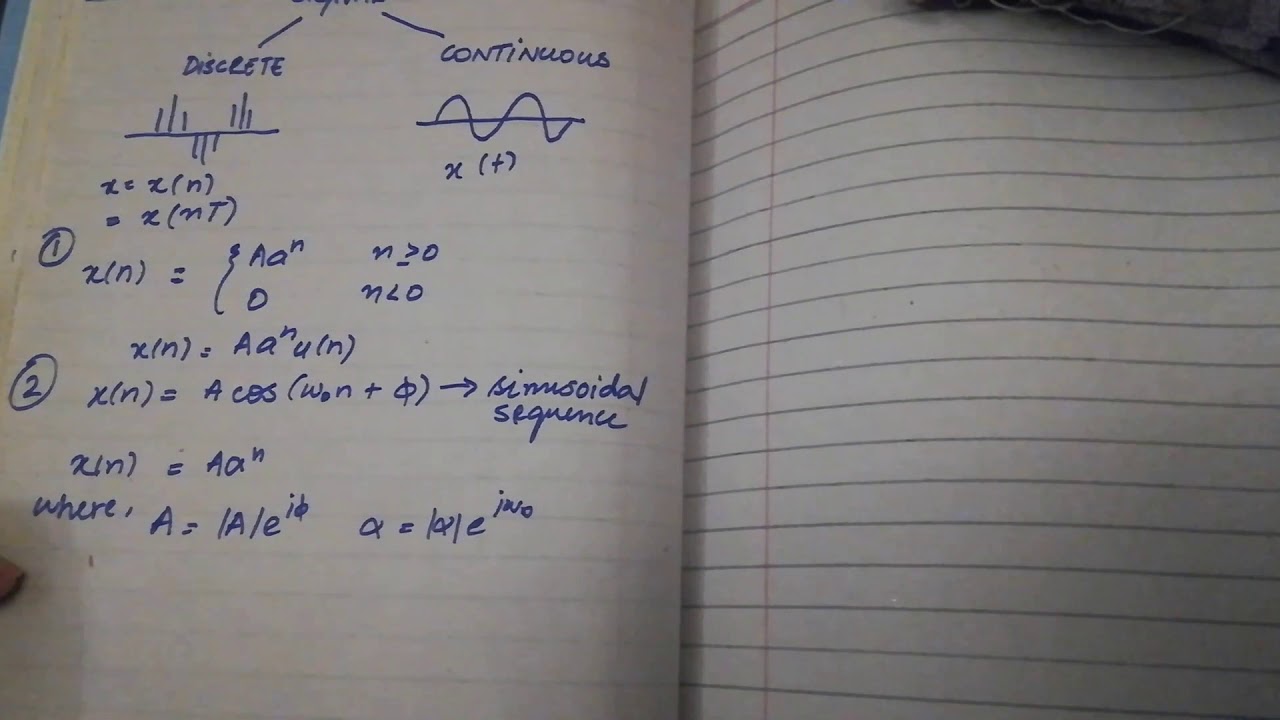 DISCRETE CONTINUOUS
x = x(n) x(t)
= x(nT)
① x(n) = { Aαⁿ n ≥ 0
0 n < 0
x(n) = Aαⁿ u(n)
② x(n) = A cos (ω₀n + ϕ) → sinusoidal
sequence
x(n) = Aαⁿ
where, A = |A|e^{jϕ} α = |α|e^{jω₀}